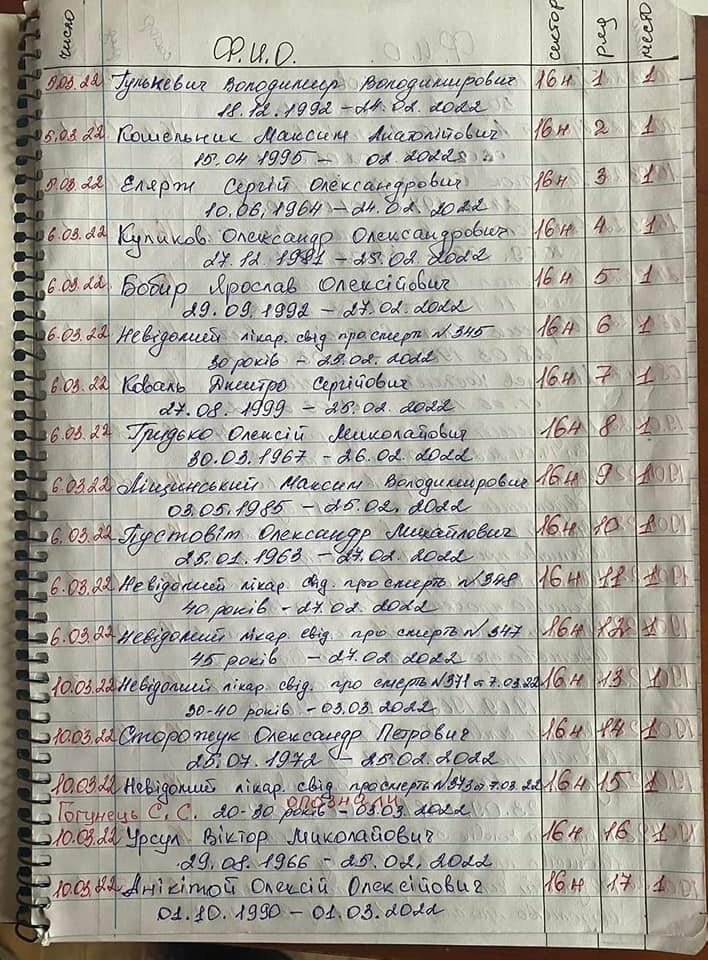 число Ф.И.О. сектор ряд место
5.03.22 Гулькевич Володимир Володимирович 16н 1 1
18.12.1992 – 24.02.2022
5.03.22 Кошельник Максим Анатолійович 16н 2 1
15.04 1995 – 02.2022
5.03.22 Елярж Сергій Олександрович 16н 3 1
10.06.1964 – 24.02.2022
6.03.22 Куликов Олександр Олександрович 16н 4 1
27.12.1981 – 25.02.2022
6.03.22 Бобир Ярослав Олексійович 16н 5 1
29.09.1992 – 27.02.2022
6.03.22 Невідомий лікар. свід про смерть №345 16н 6 1
30 років – 02.2022
6.03.22 Коваль Дмитро Сергійович 16н 7 1
27.08.1999 – 25.02.2022
6.03.22 Гридько Олексій Миколайович 16н 8 1
30.03.1967 – 26.02.2022
6.03.22 Ліщинський Максим Володимирович 16н 9 1
03.05.1985 – 25.02.2022
6.03.22 Пустовіт Олександр Михайлович 16н 10 1
25.01.1963 – 27.02.2022
6.03.22 Невідомий лікар. свід. про смерть №348 16н 11 1
40 років – 27.02 2022
6.03.22 Невідомий лікар. свід. про смерть №347 16н 12 1
45 років – 27.02 2022
10.03.22 Невідомий лікар. свід. про смерть №371 от 7.03.22 16н 13 1
30-40 років – 03.03.2022
10.03.22 Сторожук Олександр Петрович 16н 14 1
25.07.1972 – 25.02.2022
10.03.22 Невідомий лікар. свід. про смерть №373 от 7.03.22 16н 15 1
опознали
Гогунець С. С. 20-30 років – 03.03.2022
10.03.22 Урсул Віктор Миколайович 16н 16 1
29.01.1966 – 25.02.2022
10.03.22 Анікітой Олексій Олексійович 16н 17 1
01.10.1990 – 01.03.2022